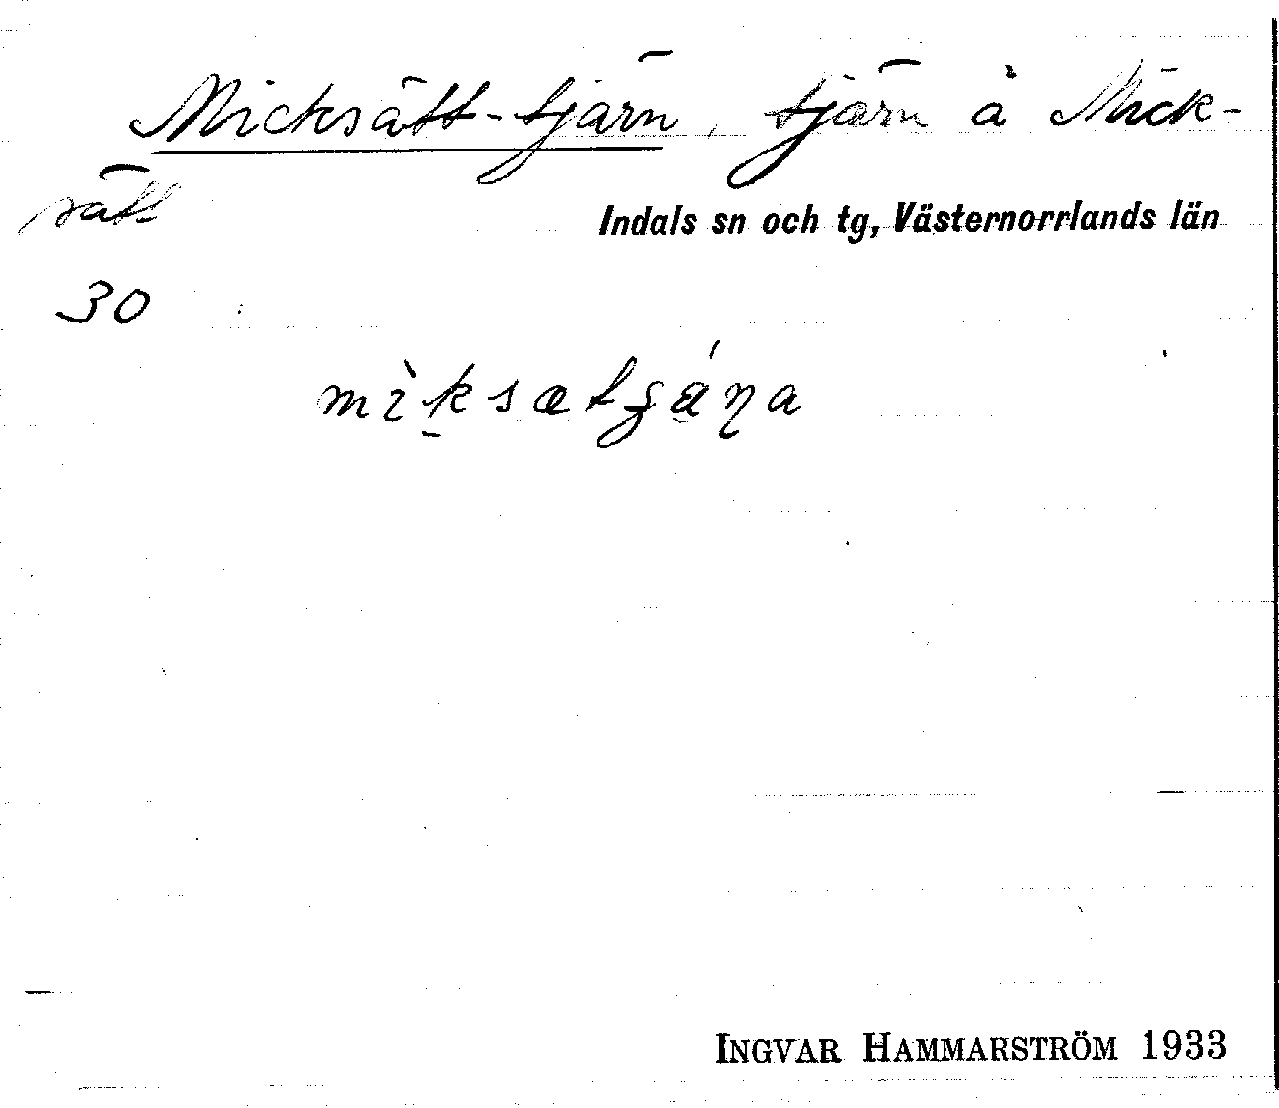 Micksätt-tjärn, tjärn å Mick-
sätt
Indals sn och tg, Västernorrlands län
30
mìksætʂá̱ɳa
INGVAR HAMMARSTRÖM 1933